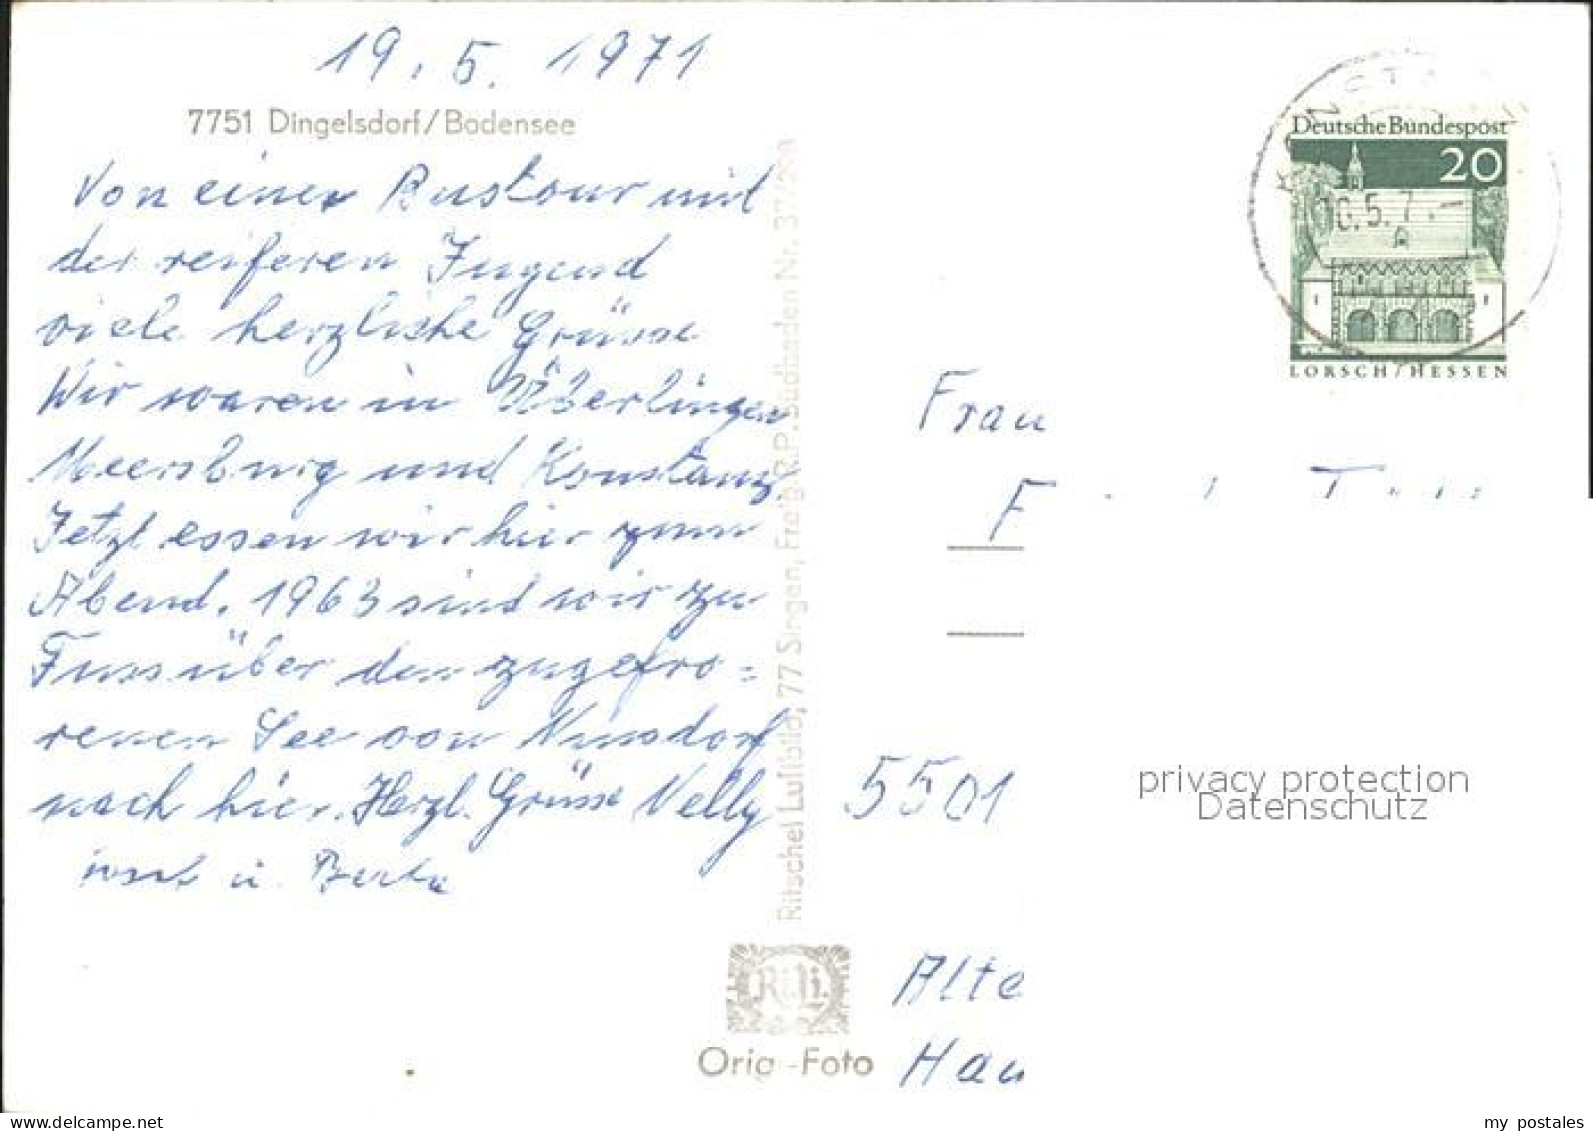 19. 5. 1971
7751 Dingelsdorf/Bodensee
Von einer Bustour mit
der reiferen Jugend
viele herzliche Grüsse
Wir waren in Überlingen
Meersburg und Konstanz
Jetzt essen wir hier zum
Abend. 1963 sind wir zu
Fuss über den zugefro=
renen See von Nussdorf
nach hier. Herzl. Grüsse Nelly
u. Berta
Ritschel Luftbild, 77 Singen, Freig. R.P. Südbaden Nr. 37/
Orig.-Foto
Deutsche Bundespost
20
LORSCH/HESSEN
Frau
F
T
5501
privacy protection
Datenschutz
Alte
Hau
delcampe.net
my postales